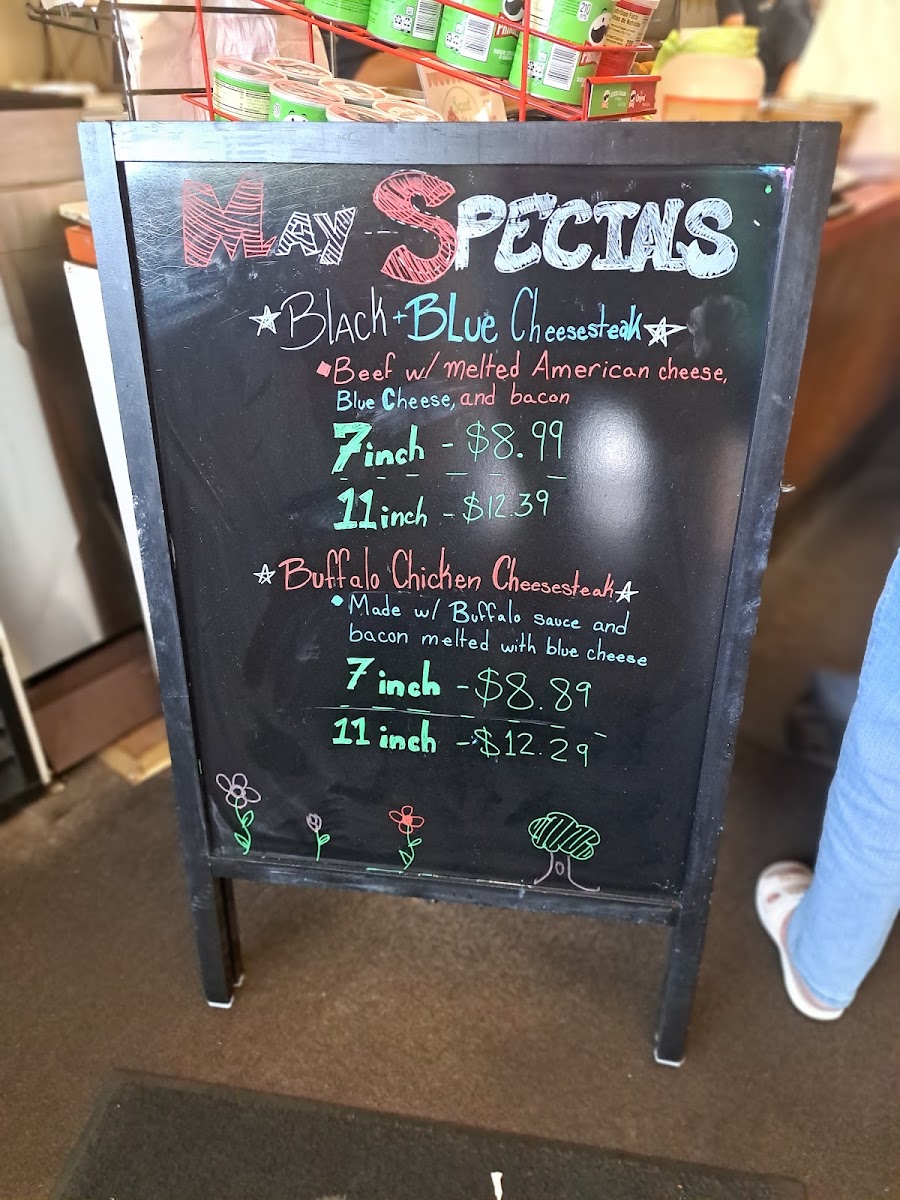 May Specials
Black + Blue Cheesesteak
Beef w/ melted American cheese,
Blue Cheese, and bacon
7inch - $8.99
11inch - $12.39
Buffalo Chicken Cheesesteak
Made w/ Buffalo sauce and
bacon melted with blue cheese
7 inch - $8.89
11 inch - $12.29